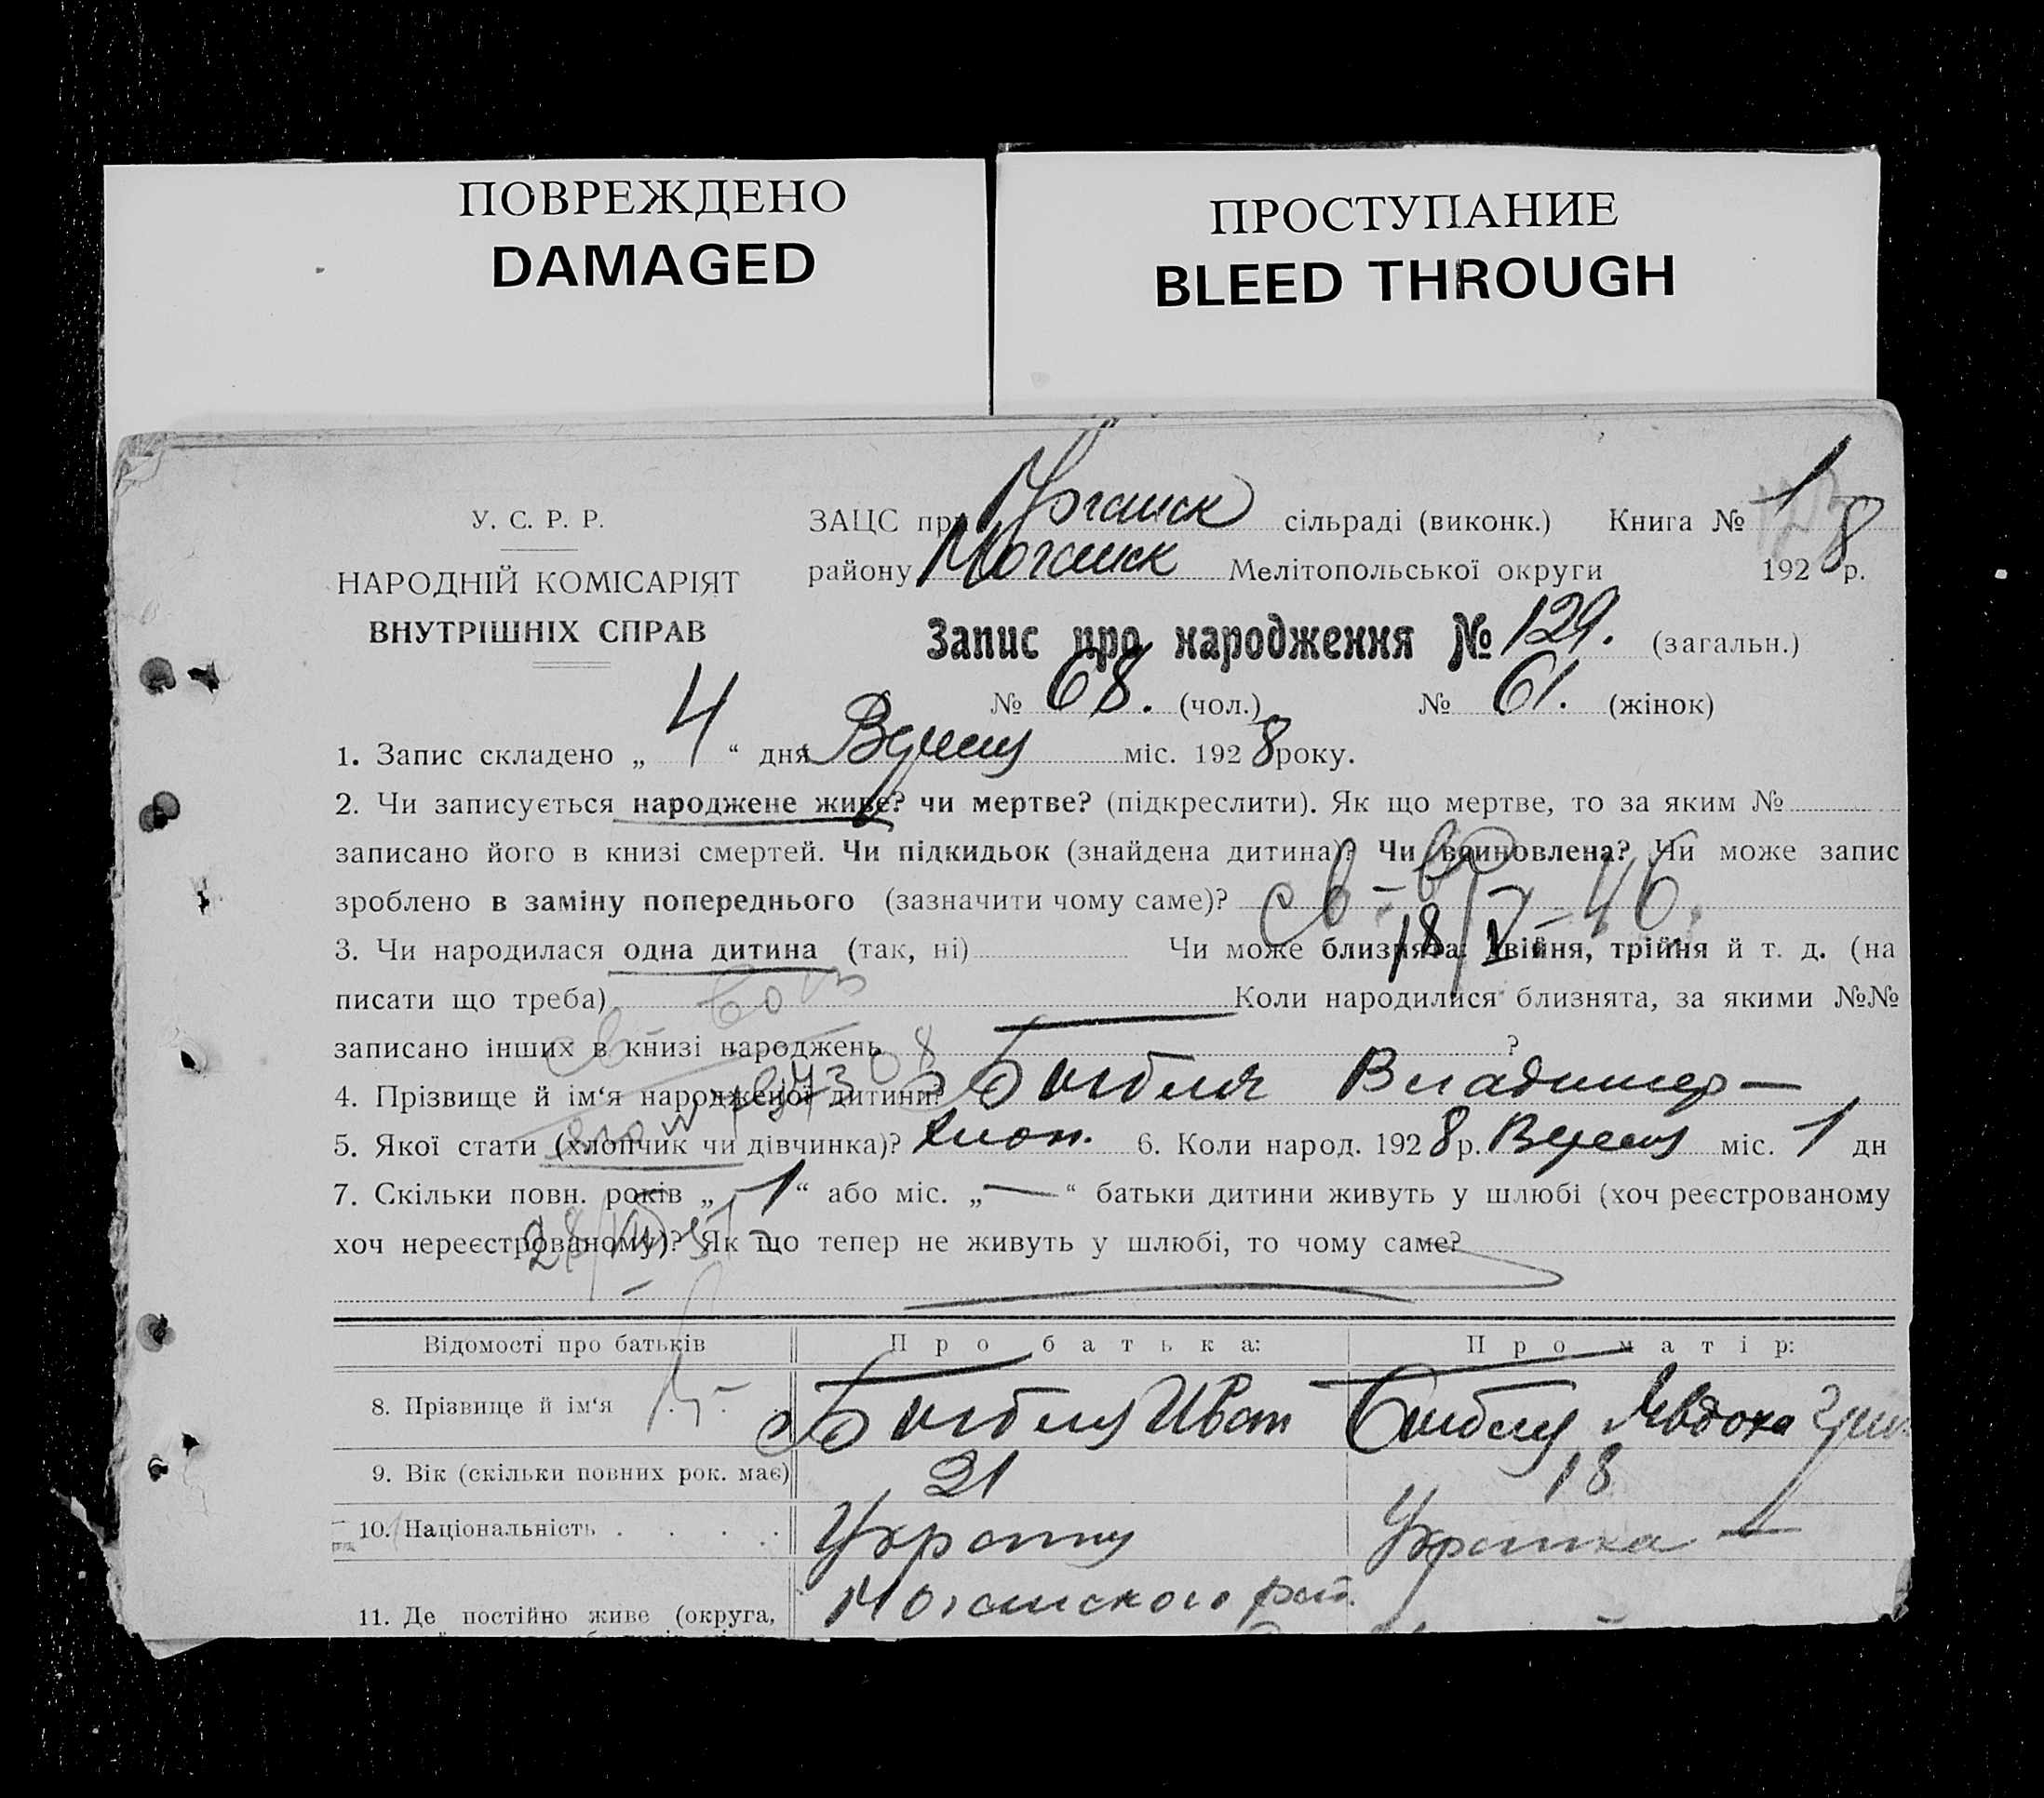 ПОВРЕЖДЕНО
DAMAGED
ПРОСТУПАНИЕ
BLEED THROUGH
У. С. Р. Р.
НАРОДНІЙ КОМІСАРІЯТ
ВНУТРІШНІХ СПРАВ
ЗАЦС при сільраді (виконк.) Книга № 1
району Мелітопольської округи 1928 р.
Запис про народження № 129. (загальн.)
№ 68. (чол.) № 61. (жінок)
1. Запис складено „ 4 “ дня Вересня міс. 1928 року.
2. Чи записується народжене живе? чи мертве? (підкреслити). Як що мертве, то за яким №
записано його в книзі смертей. Чи підкидьок (знайдена дитина)? Чи всиновлена? Чи може запис
зроблено в заміну попереднього (зазначити чому саме)?
св-во 18/V-46.
3. Чи народилася одна дитина (так, ні) Чи може близнята, двійня, трійня й т. д. (на
писати що треба) Коли народилися близнята, за якими №№
записано інших в книзі народжень ?
4. Прізвище й ім‘я народженої дитини? Владимер —
5. Якої стати (хлопчик чи дівчинка)? Хлоп. 6. Коли народ. 1928 р. Вересня міс. 1 дн
7. Скільки повн. років „ 1 “ або міс. „ — “ батьки дитини живуть у шлюбі (хоч реєстрованому
хоч нереєстрованому)? Як що тепер не живуть у шлюбі, то чому саме?
Відомості про батьків Про батька: Про матір:
8. Прізвище й ім‘я Иван Явдоха
9. Вік (скільки повних рок. має) 21 18
10. Національність . . . .
11. Де постійно живе (округа,